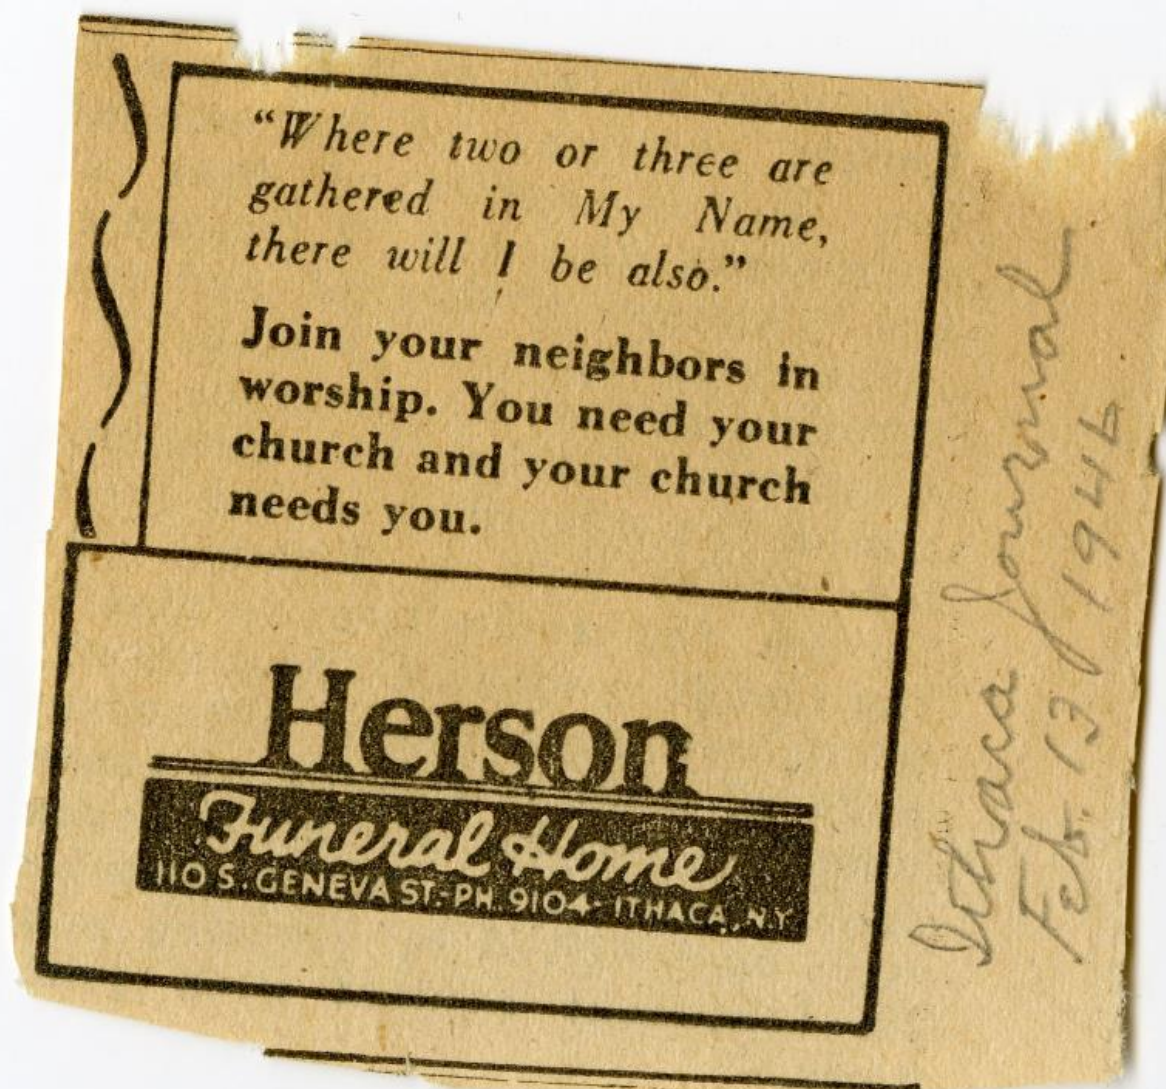 “Where two or three are
gathered in My Name,
there will I be also.”
Join your neighbors in
worship. You need your
church and your church
needs you.
Herson
Funeral Home
110 S. GENEVA ST.-PH. 9104- ITHACA, N.Y
Ithaca Journal
Feb. 13 1946